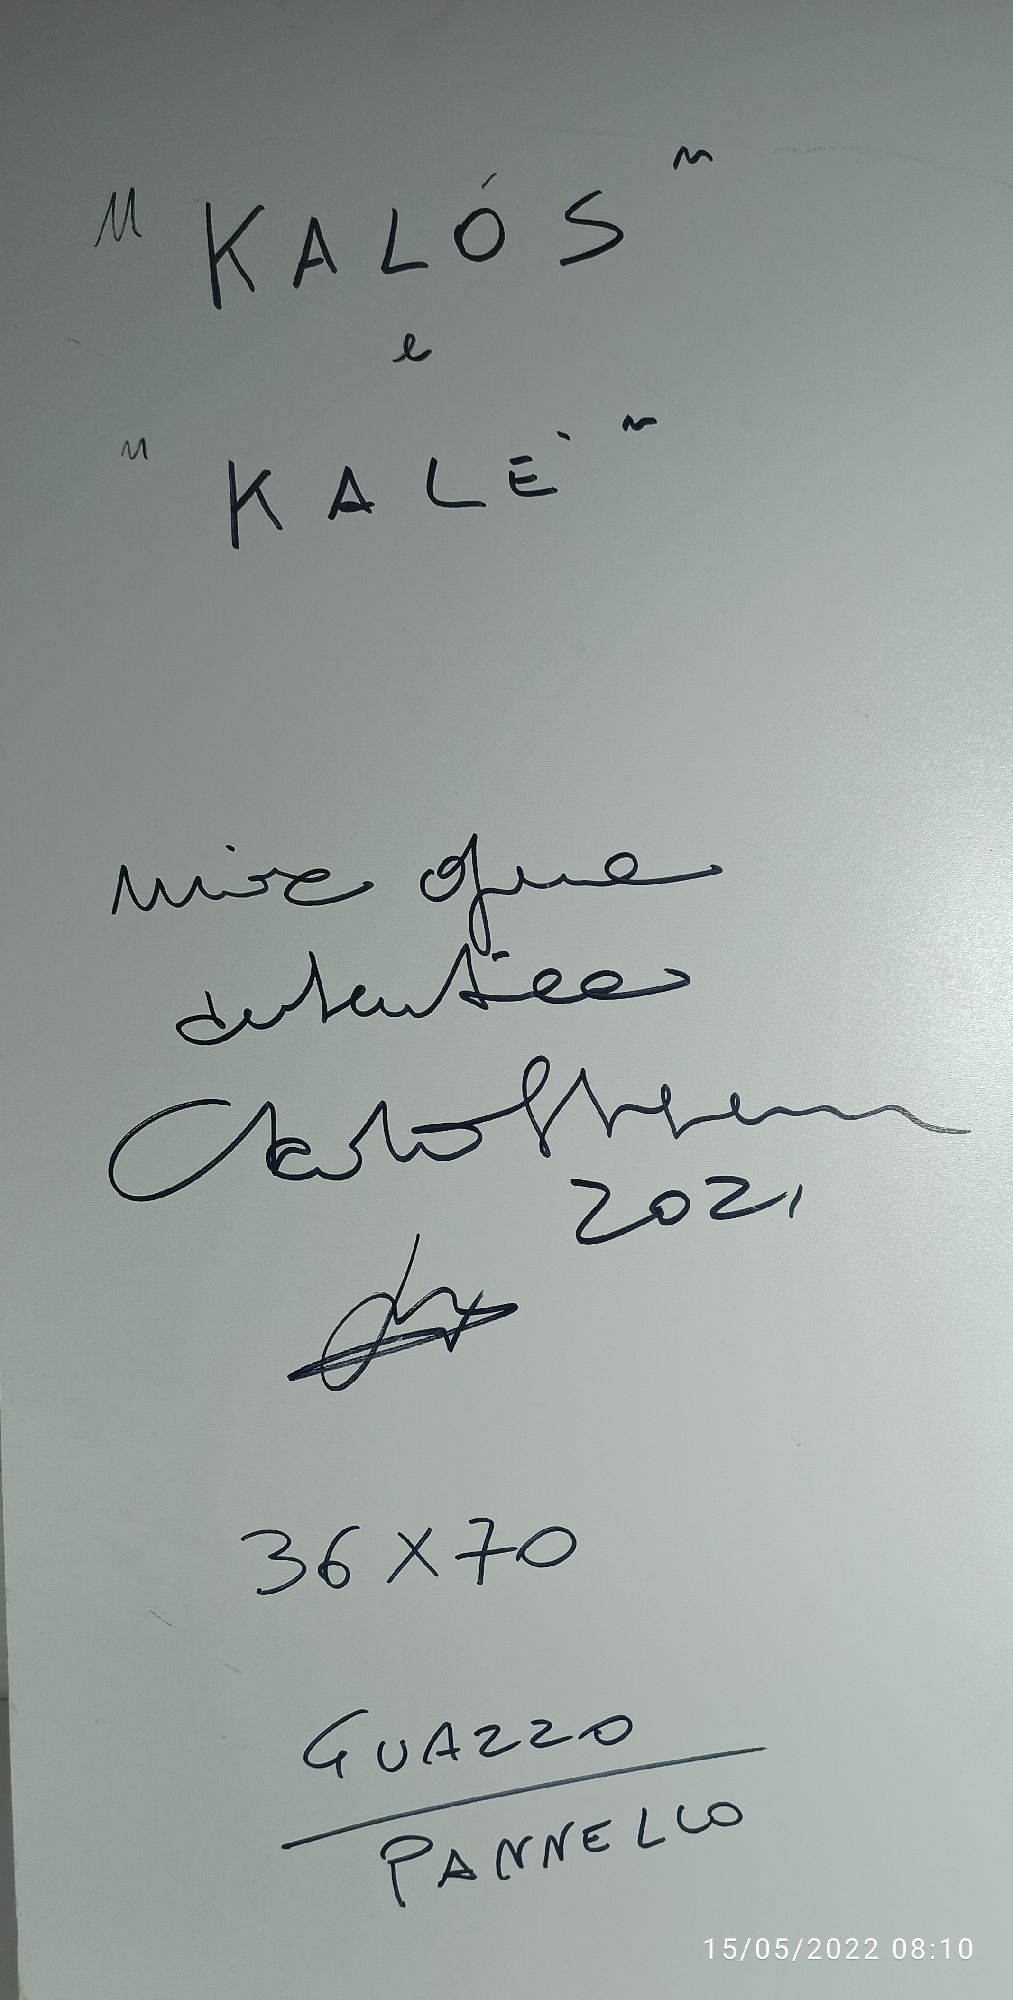 "KALÓS"
e
"KALÈ"
mia opera
autentica
2021
36 X 70
GUAZZO
PANNELLO
15/05/2022 08:10